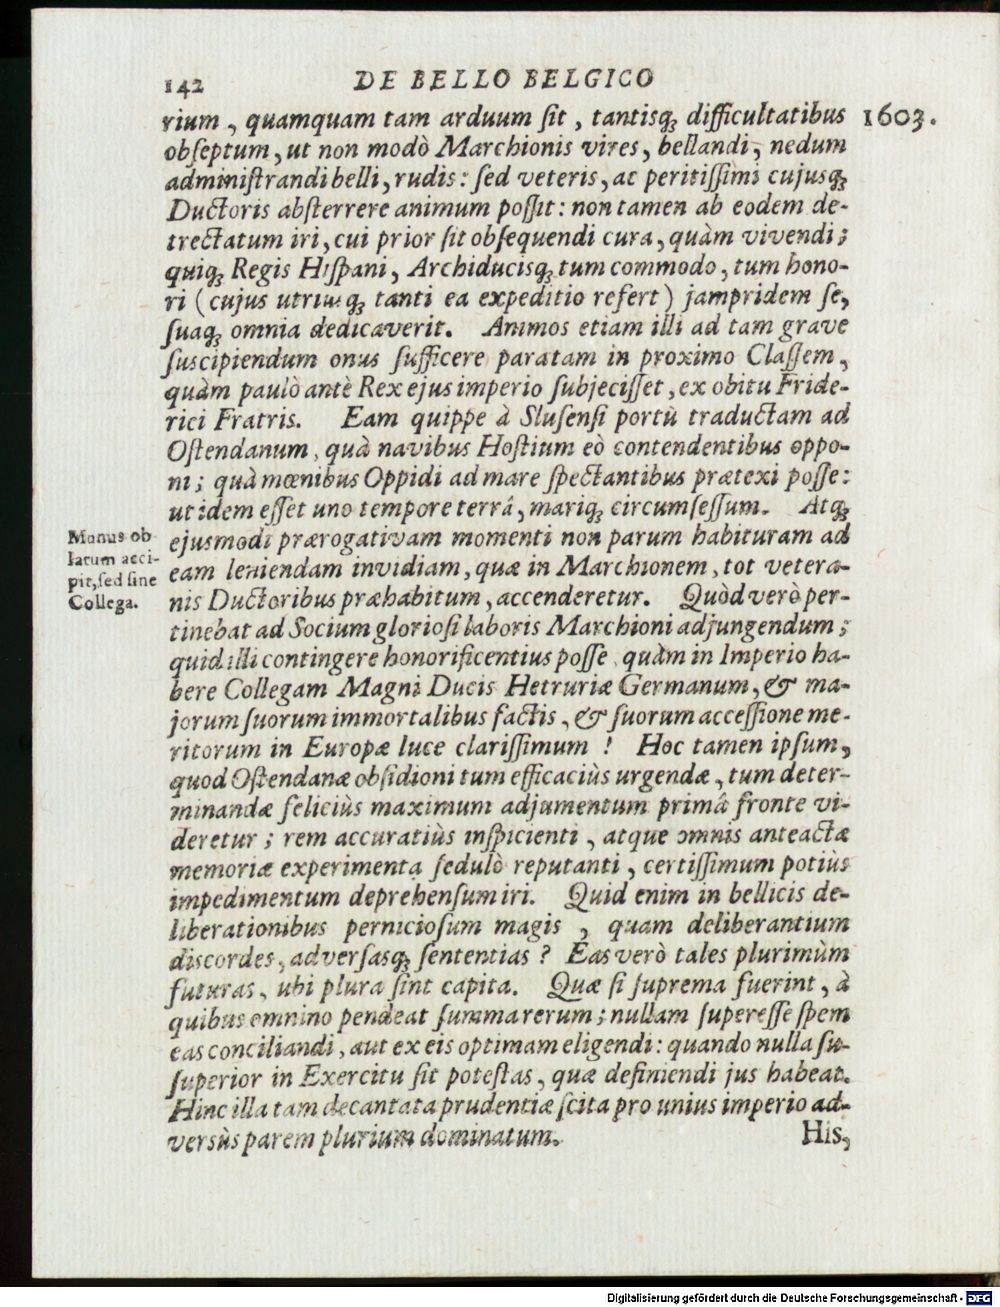 142 DE BELLO BELGICO
rium, quamquam tam arduum sit, tantisq́; difficultatibus 1603.
obseptum, ut non modò Marchionis vires, bellandi, nedum
administrandi belli, rudis: sed veteris, ac peritissimi cujusq́;
Ductoris absterrere animum possit: non tamen ab eodem de-
trectatum iri, cui prior sit obsequendi cura, quàm vivendi;
quiq́; Regis Hispani, Archiducisq́; tum commodo, tum hono-
ri (cujus utriusq́; tanti ea expeditio refert) jampridem se,
suaq́; omnia dedicaverit. Animos etiam illi ad tam grave
suscipiendum onus sufficere paratam in proximo Classem,
quàm paulò antè Rex ejus imperio subjecisset, ex obitu Fride-
rici Fratris. Eam quippe à Slusensi portù traductam ad
Ostendanum, quà navibus Hostium eò contendentibus oppo-
ni; quà mœnibus Oppidi ad mare spectantibus prætexi posse:
ut idem esset uno tempore terrâ, mariq́; circumsessum. Atq́;
ejusmodi prærogativam momenti non parum habituram ad
eam leniendam invidiam, quæ in Marchionem, tot vetera-
nis Ductoribus præhabitum, accenderetur. Quòd verò per-
tinebat ad Socium gloriosi laboris Marchioni adjungendum;
quid illi contingere honorificentius posse, quàm in Imperio ha-
bere Collegam Magni Ducis Hetruriæ Germanum, & ma-
jorum suorum immortalibus factis, & suorum accessione me-
ritorum in Europæ luce clarissimum! Hoc tamen ipsum,
quod Ostendanæ obsidioni tum efficaciùs urgendæ, tum deter-
minandæ feliciùs maximum adjumentum primâ fronte vi-
deretur; rem accuratiùs inspicienti, atque omnis anteactæ
memoriæ experimenta sedulò reputanti, certissimum potiùs
impedimentum deprehensum iri. Quid enim in bellicis de-
liberationibus perniciosum magis, quam deliberantium
discordes, adversasq́; sententias? Eas verò tales plurimùm
futuras, ubi plura sint capita. Quæ si suprema fuerint, à
quibus omnino pendeat summa rerum; nullam superesse spem
eas conciliandi, aut ex eis optimam eligendi: quando nulla su-
superior in Exercitu sit potestas, quæ definiendi jus habeat.
Hinc illa tam decantata prudentiæ scita pro unius imperio ad-
versùs parem plurium dominatum.
His,
Munus ob
latum acci-
pit, sed sine
Collega.
Digitalisierung gefördert durch die Deutsche Forschungsgemeinschaft - DFG